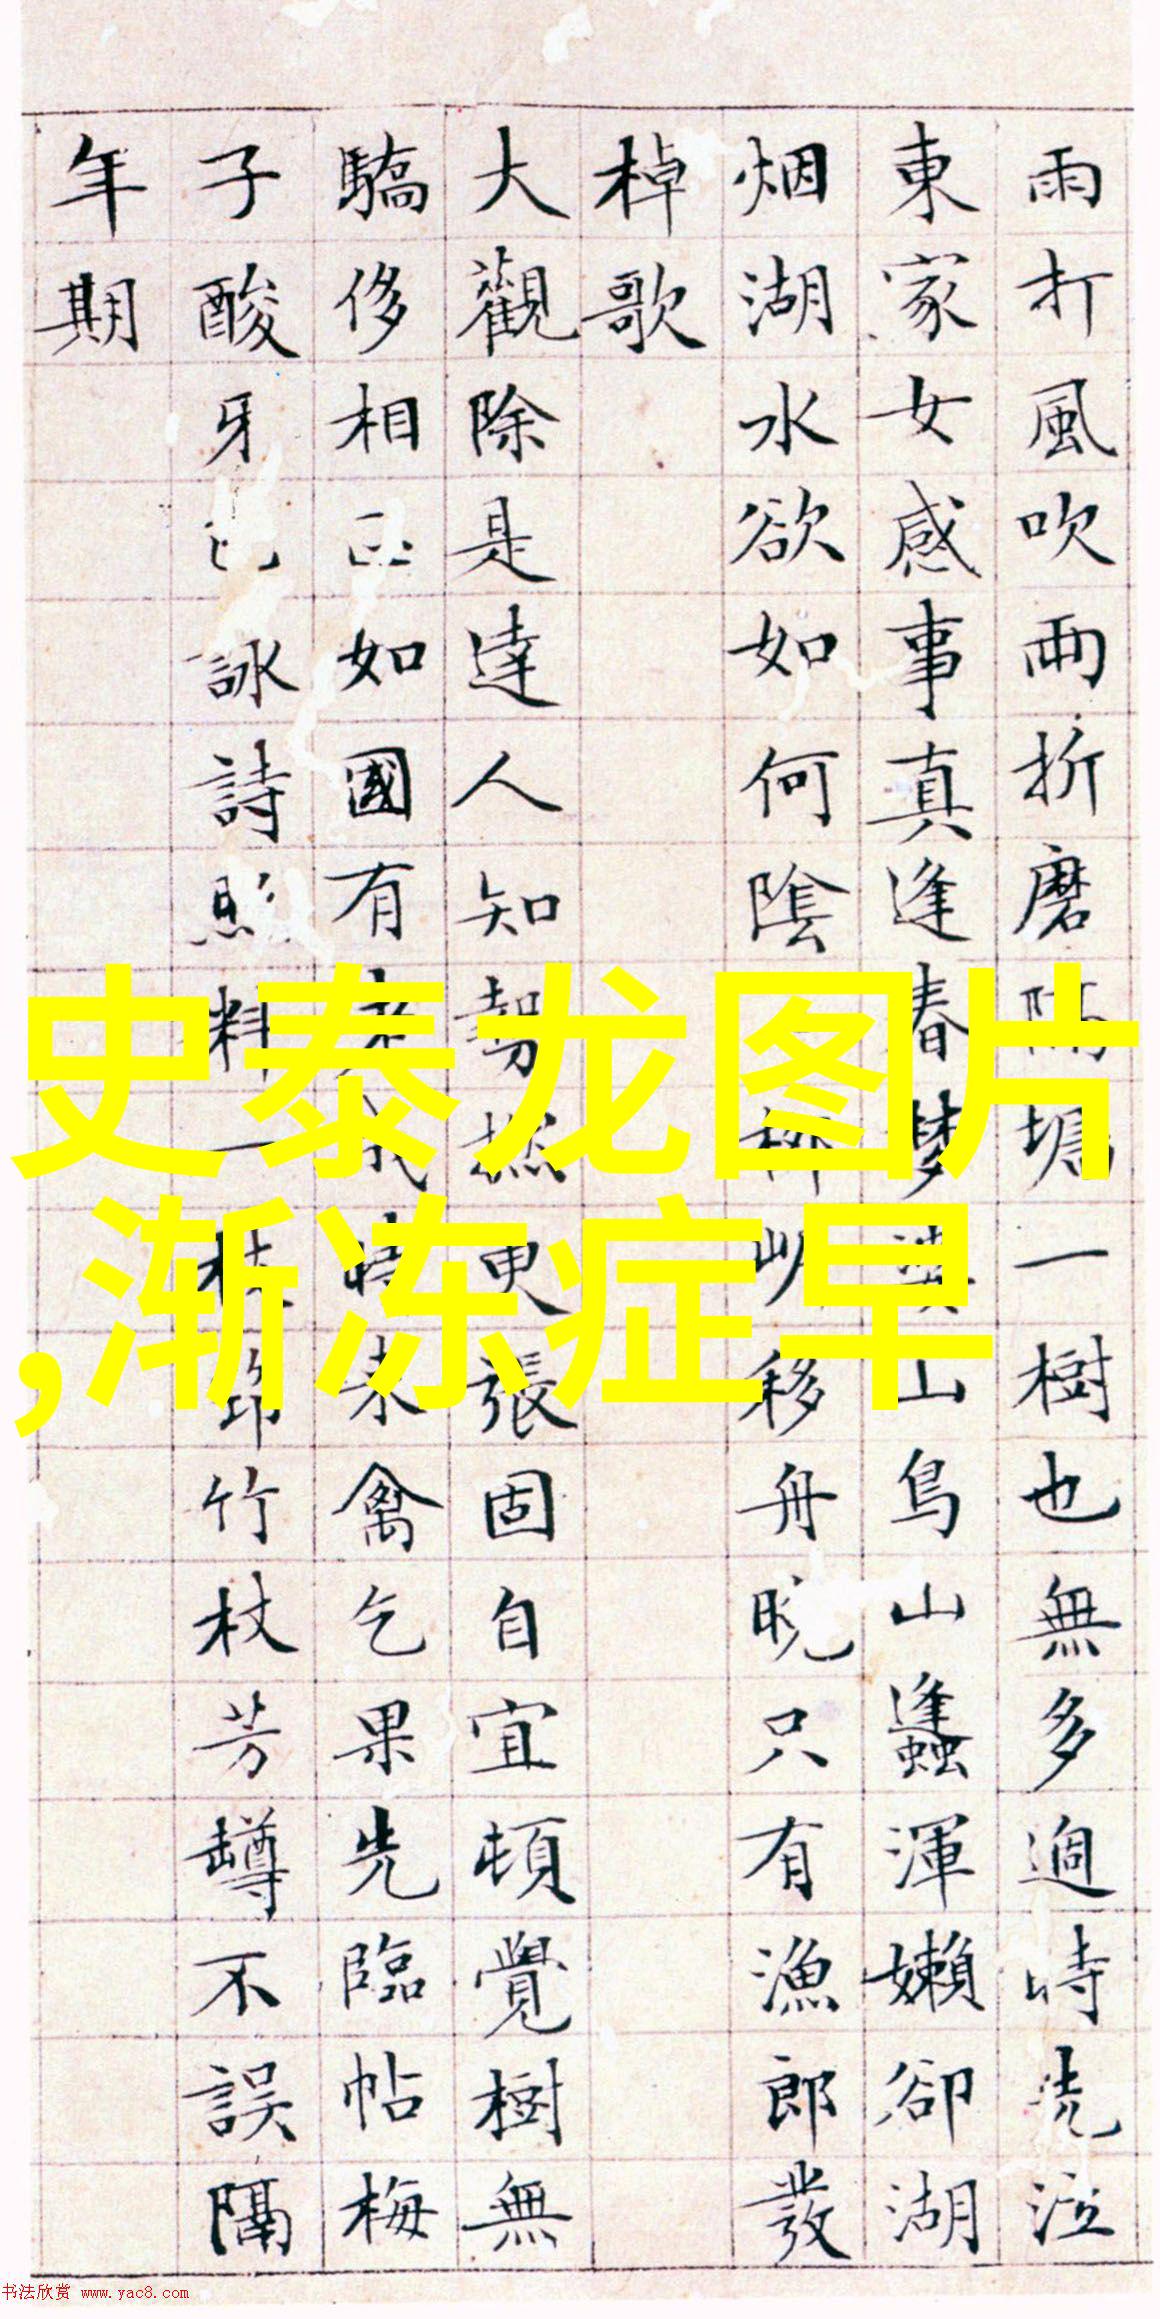 雨打風吹雨折磨隔塢一樹也無多過時洗泣
東家女感事真逢春夢溪山鳥山蠭渾嬾卻湖
烟湖水欲如何陰一柳岈移舟晚只有漁郎發
棹歌
大觀除是達人知勢撚更張固自宜頓覺樹無
驕侈相正如國有老成時未禽乞果先臨帖梅
子酸牙已詠詩照料一枝筇竹杖芳罇不誤隔
年期
史泰龙图片
,渐冻症早
书法欣赏 www.yac8.com